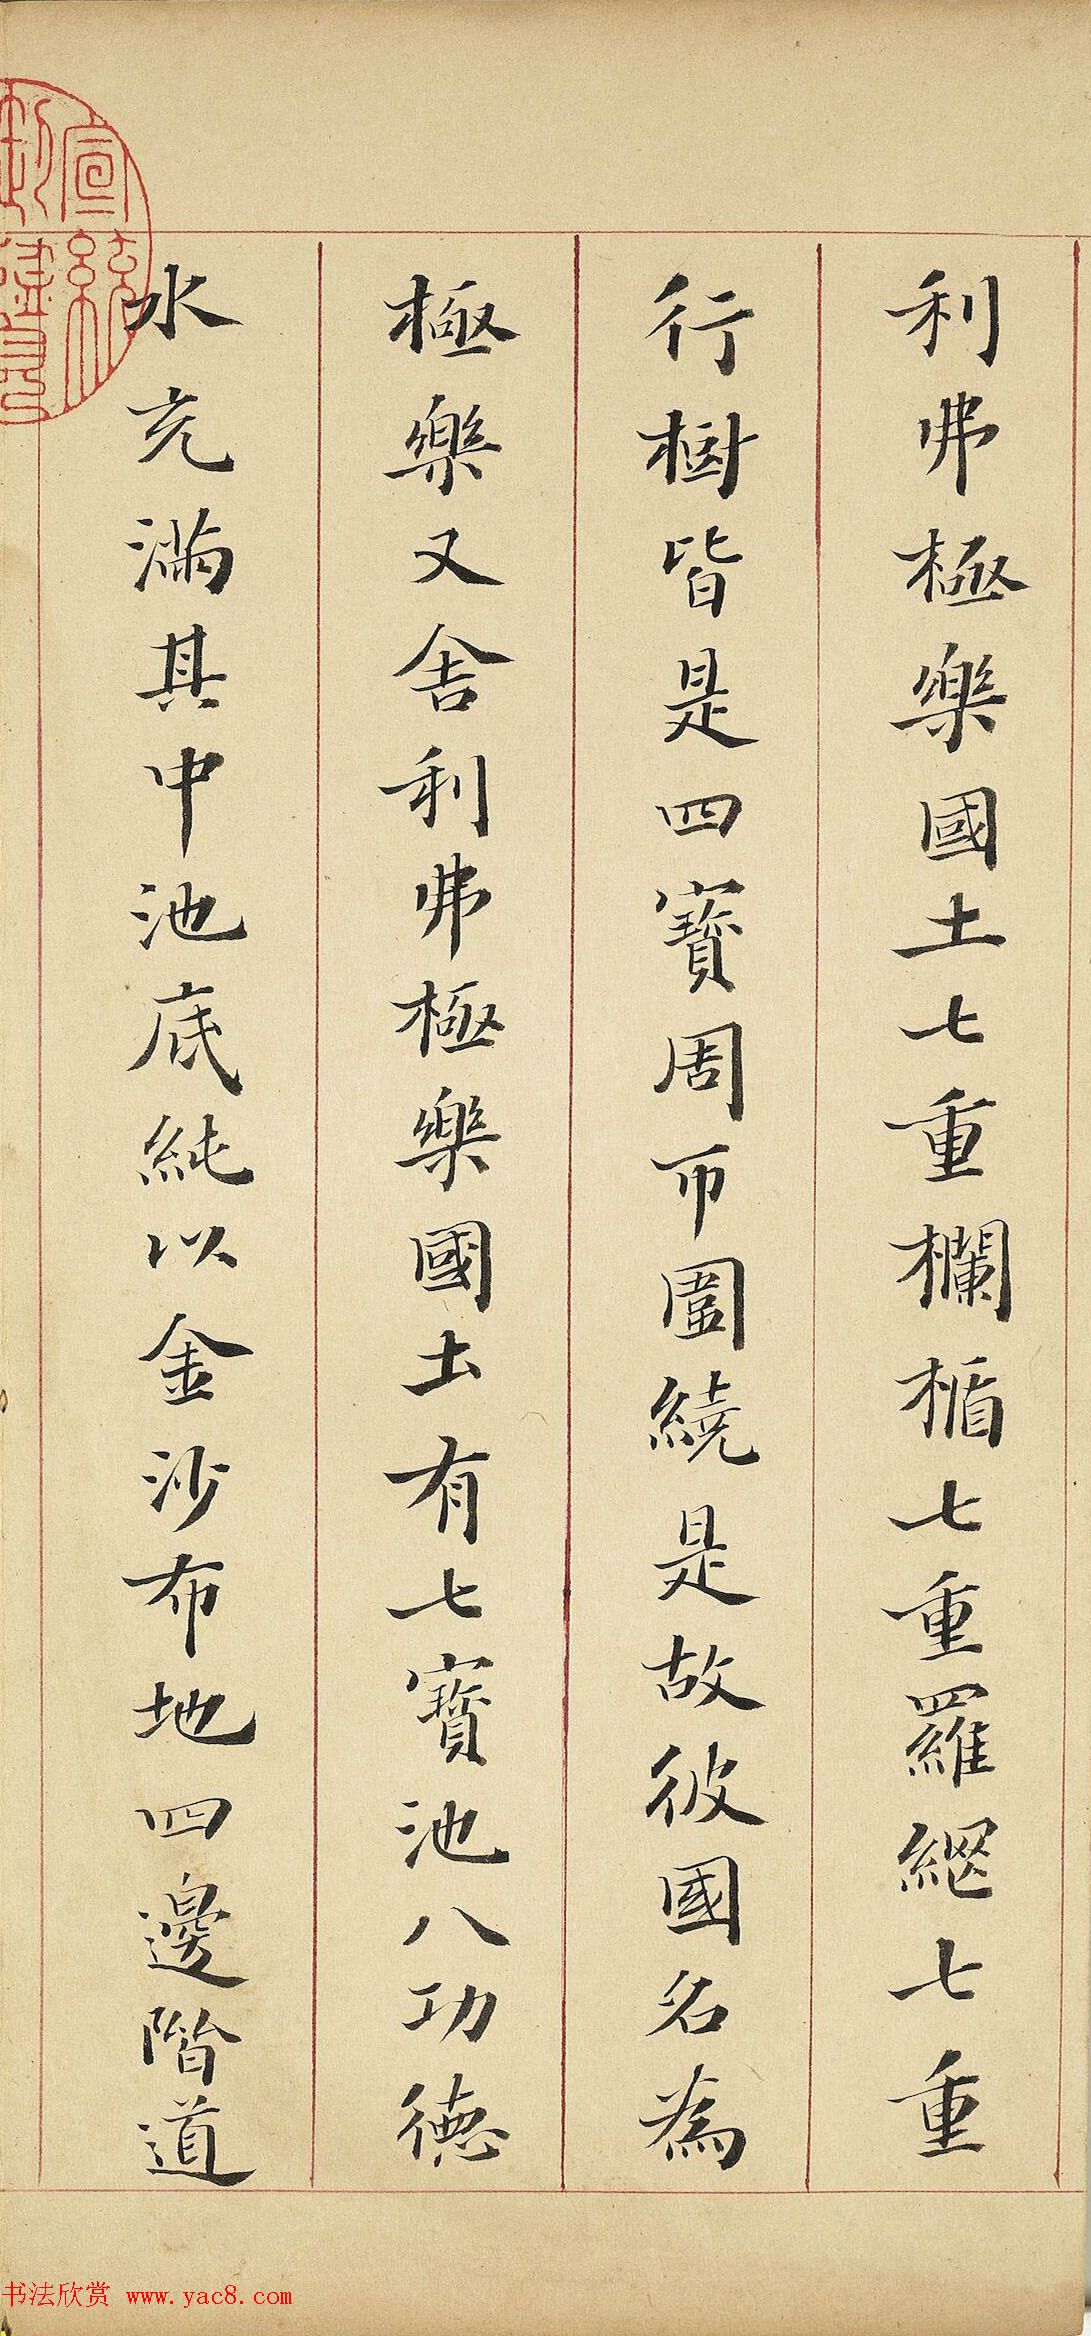 利弗極樂國土七重欄楯七重羅網七重
行樹皆是四寶周帀圍繞是故彼國名為
極樂又舍利弗極樂國土有七寶池八功德
水充滿其中池底純以金沙布地四邊階道
宣統
书法欣赏 www.yac8.com